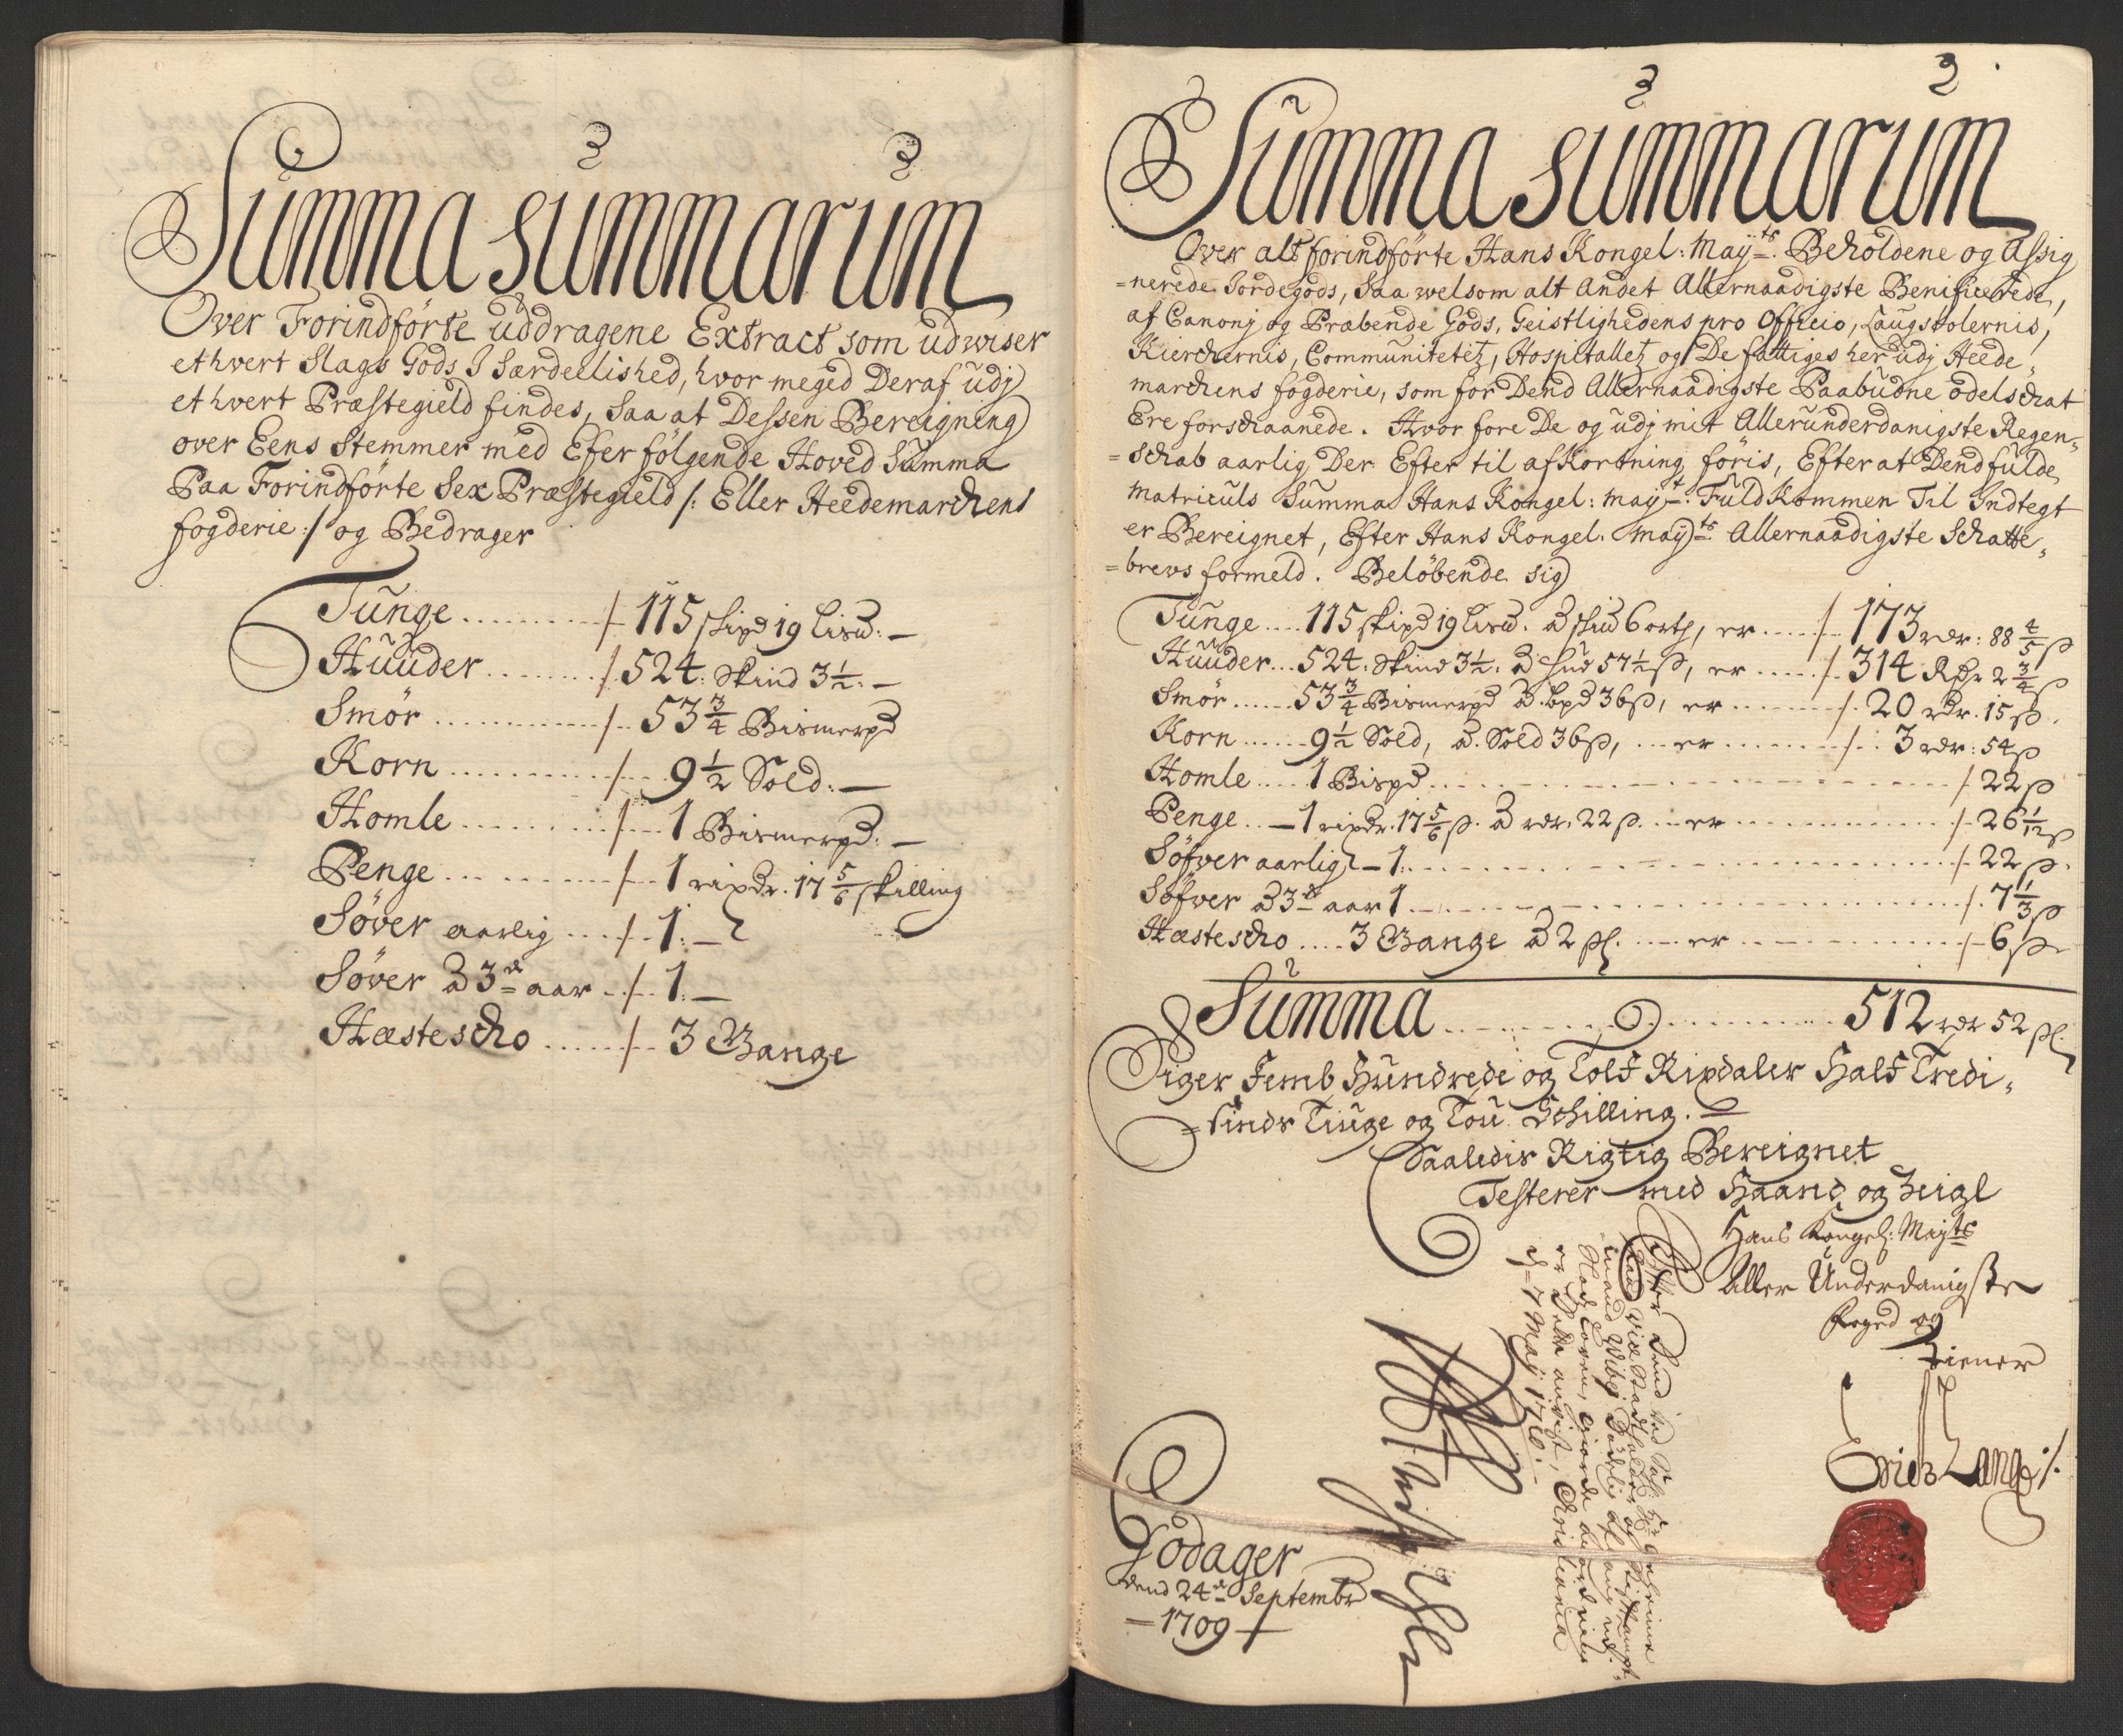 Summa summarum
Over Forindförte uddragene Extract som udwiser
ethvert Slags Gods I Særdeelished, hvor meged Deraf udj
ethvert Præstegield findes, Saa at Dessen Bereigning
over Eens Stemmer med Efterfölgende Hoved Summa
Paa Forindförte Sex Præstegield /: Eller Heedemarchens
fogderie :/ og Bedrager
Tunge ......... /. 115 skipd 19 Lisd: —
Huuder ........ /. 524: Skind 3½: —
Smör ......... /. 53¾ Bismerpd
Korn ......... /. 9½ Sold: —
Homle ......... /. 1 Bismerpd: —
Penge ......... /. 1 rixdr. 17 5/6 skilling
Søver aarlig .... /. 1: —
Søver à 3de aar .. /. 1: —
Hæstescho ...... /. 3 Gange
Summa summarum
Over alt forindförte Hans Kongel: Mayts. Beholdene og Assig
=nerede Jordegods, Saa welsom alt Andet Allernaadigste Benificerede,
af Canonj og Præbende Gods, Geistlighedens pro Officio, Laugstolernis,
Kierchernis, Communitetetz, Hospitalletz og De fattiges her udj Heede,
marchens fogderie, som for Dend Allernaadigste Paabudne odelschat
Ere forschaanede. Hvor fore De og udj mit Allerunderdanigste Regen=
=schab aarlig Der Efter til afkortning föris, Efter at Dend fulde
Matriculs Summa Hans Kongel: mayt. Fuldkommen Til Indtegt
er Bereignet, Efter Hans Kongel. Mayts Allernaadigste Schatte,
=brevs formeld. Belöbende sig
Tunge .... 115 skipd 19 Lisd. à skid 6 ort, er ..... /. 173 rdr: 88 4/5 ß
Huuder ... 524: Skind 3½. à hud 57½ ß, er ..... /. 314 Rdr 2¾ ß
Smör ..... 53¾ Bismerpd à bpd 36 ß, er ....... /. 20 rdr. 15 ß.
Korn ..... 9½ Sold, à Sold 36 ß, ... er ....... /. 3 rdr: 54 ß
Homle .... 1 Bispd ....... /. 22 ß
Penge .. — 1 rixdr. 17 5/6 ß. à rdr. 22 ß. ... er ....... /. 26 1/12 ß
Söfver aarlig — 1: ....... /. 22 ß.
Söfver à 3de aar 1 ....... /. 7⅓ ß
Hæstescho .... 3 Gange à 2 ßl. ... er ....... /. 6 ß
Summa ........ 512 rdr 52 ßl.
Siger Femb Hundrede og Tolf Rixdaler Half Tredi,
=sinds Tiuge og Tou Schilling. —
Saaledis Rigtig Bereignet
Testerer med Haand og Zeigl
Hans Kongel: Mayts
Aller Underdanigste
Foged og
Tiener
Erich Lange /.
Godager
dend 24de Septembr
— 1709 —
Efter Dend
Vice Stadtholder og
mand Wibe
er Dette anvist, Christiania
d: 7 Maij 1710. —